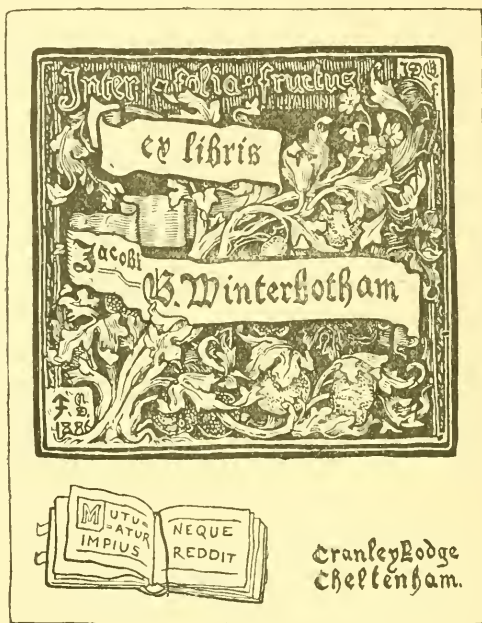 Inter · folia · fructus
ex libris
Jacobi
B. Winterbotham
1886
MUTU=
=ATUR
IMPIUS
NEQUE
REDDIT
Cranley Lodge
Cheltenham.